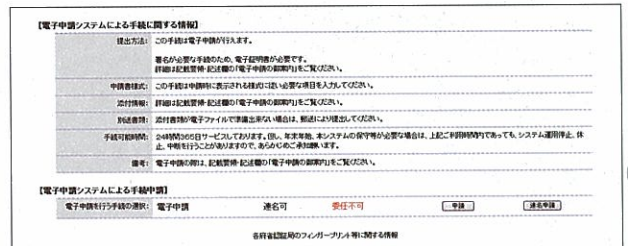 【電子申請システムによる手続に関する情報】
提出方法: この手続は電子申請が行えます。
署名が必要な手続のため、電子証明書が必要です。
詳細は記載要領・記述欄の「電子申請の御案内」をご覧ください。
申請書様式: この手続は申請時に表示される様式に従い必要な項目を入力してください。
添付情報: 詳細は記載要領・記述欄の「電子申請の御案内」をご覧ください。
別送書類: 添付書類が電子ファイルで準備出来ない場合は、郵送により提出してください。
手続可能時間: 24時間365日サービスしております。但し、年末年始、本システムの保守等が必要な場合は、上記ご利用時間内であっても、システム運用停止、休
止、中断を行うことがありますので、あらかじめご承知願います。
備考: 電子申請の際は、記載要領・記述欄の「電子申請の御案内」をご覧ください。
【電子申請システムによる手続申請】
電子申請を行う手続の選択: 電子申請 連名可 委任不可 申請 連名申請
各府省認証局のフィンガープリント等に関する情報